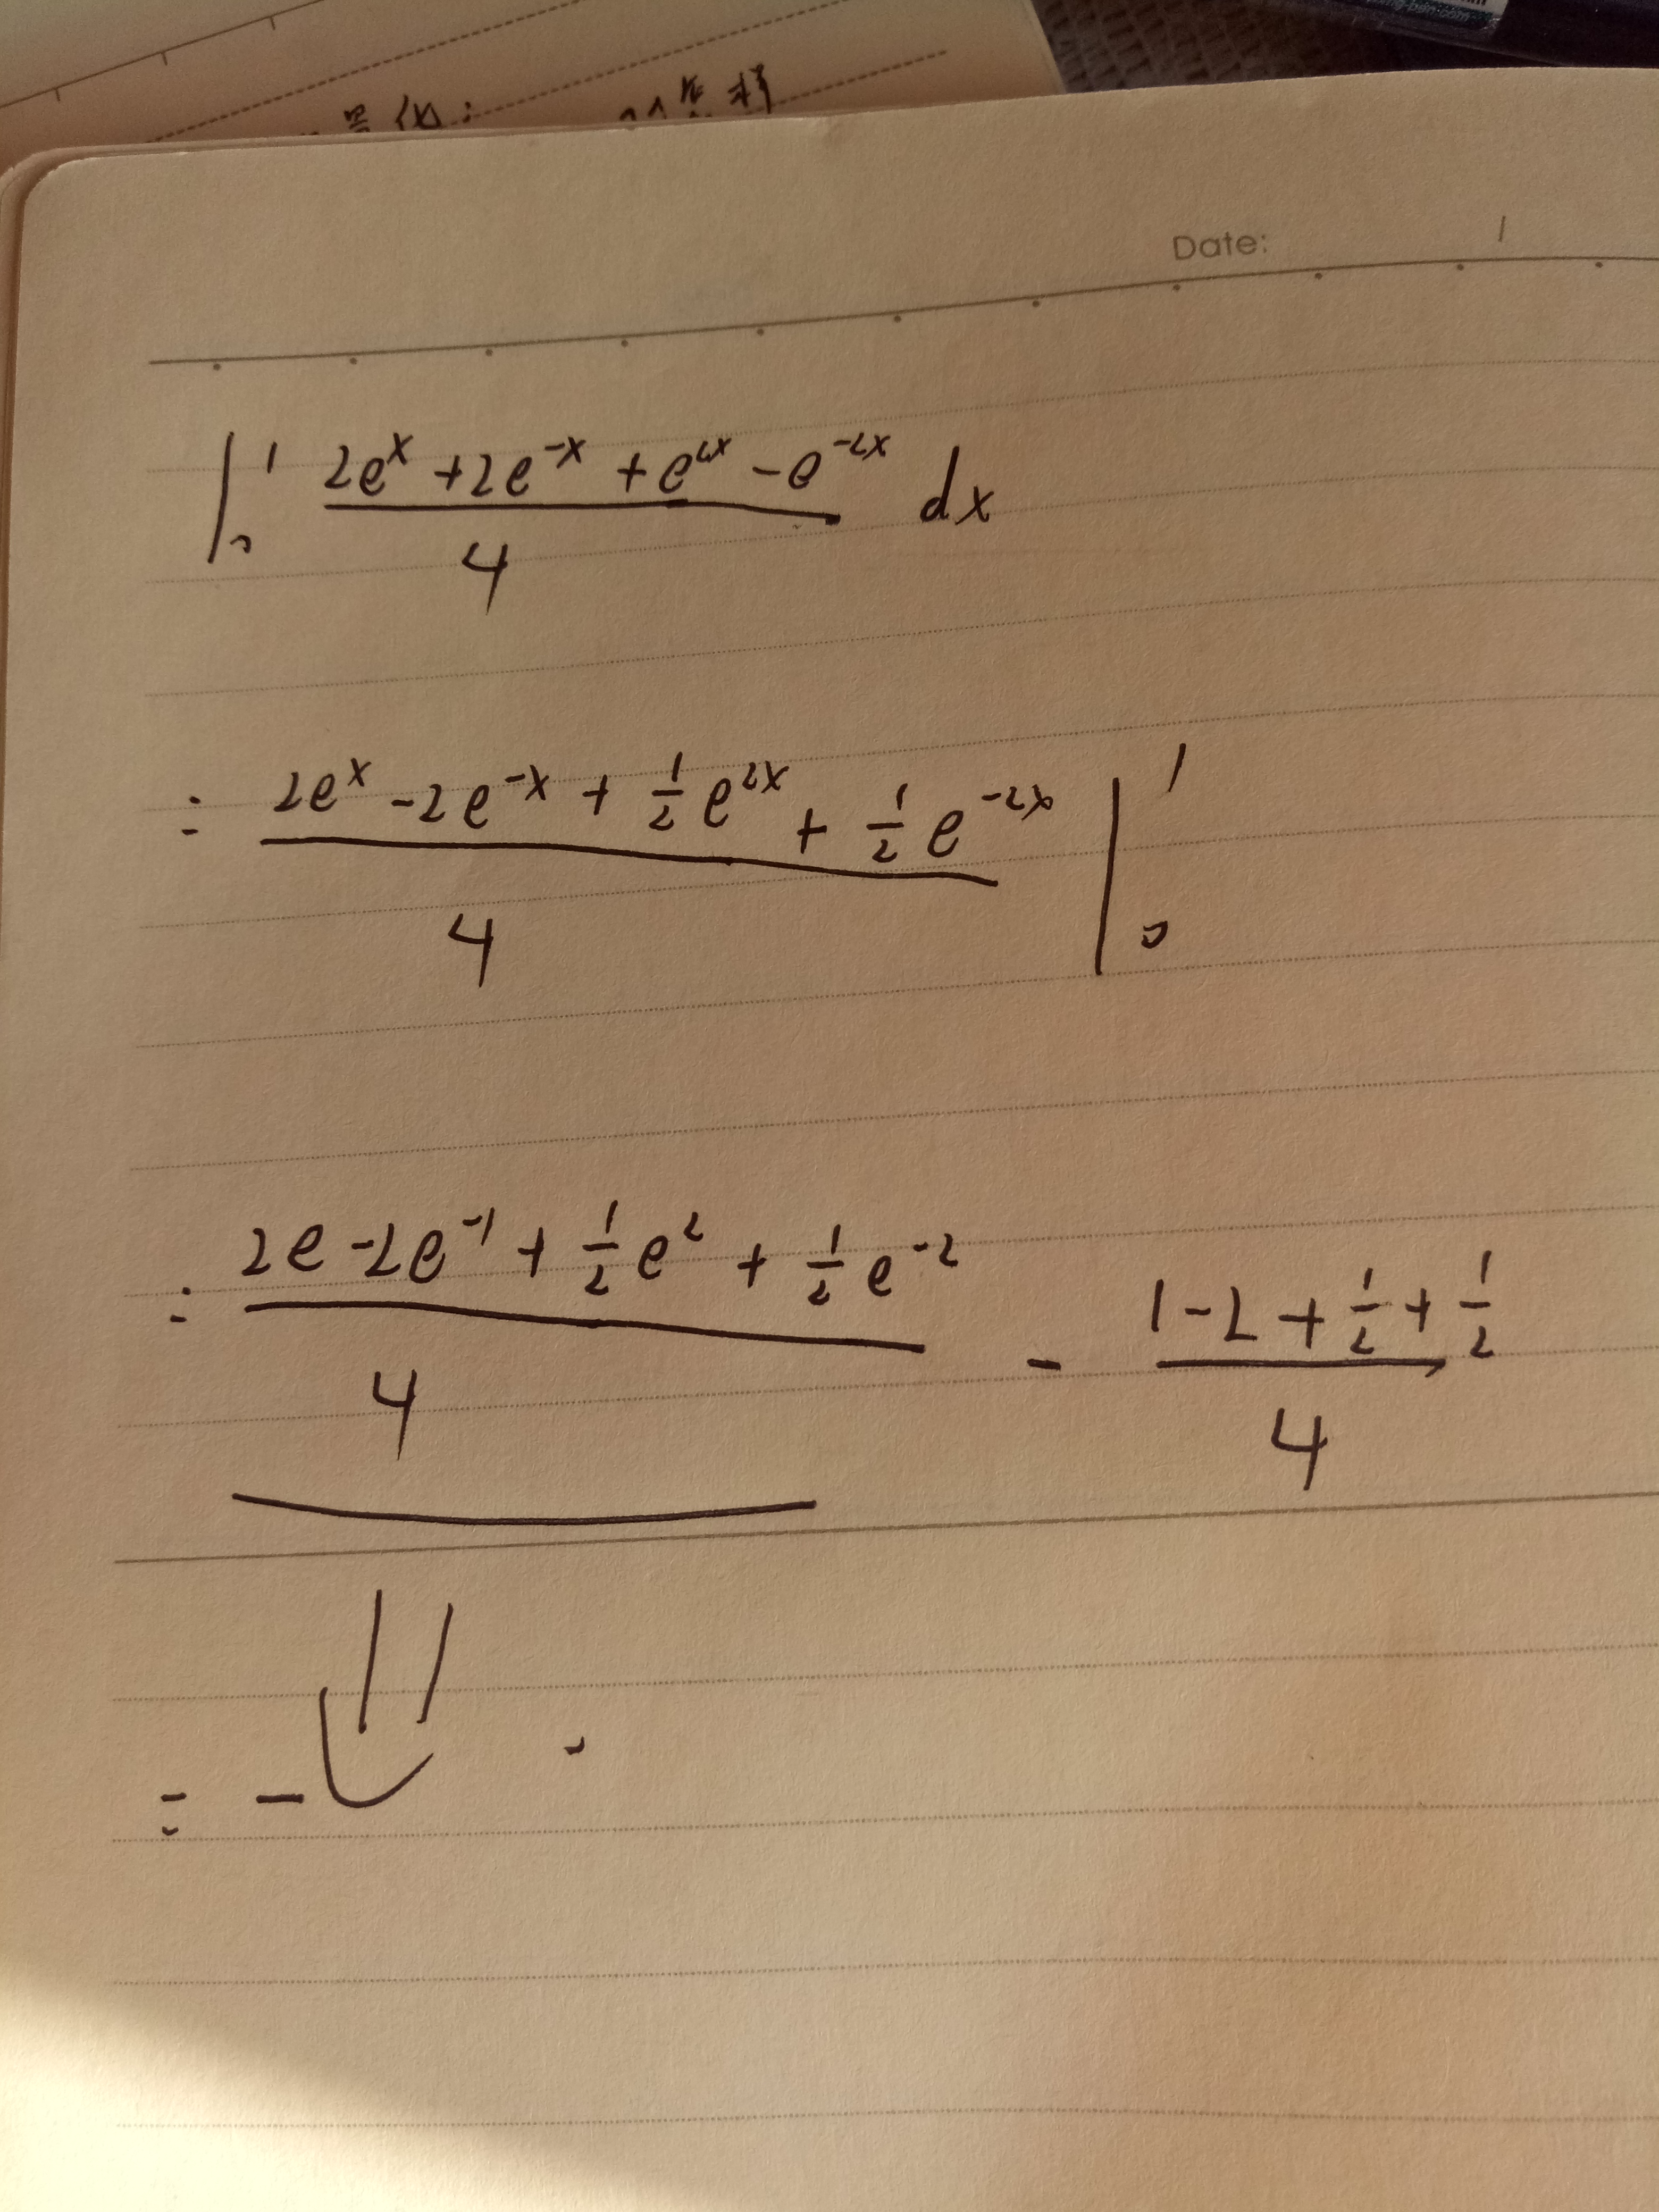 Date: /
∫₀¹ (2eˣ + 2e⁻ˣ + e²ˣ - e⁻²ˣ)/4 dx
= (2eˣ - 2e⁻ˣ + 1/2 e²ˣ + 1/2 e⁻²ˣ)/4 |₀¹
= (2e - 2e⁻¹ + 1/2 e² + 1/2 e⁻²)/4 - (1 - 2 + 1/2 + 1/2)/4
= -